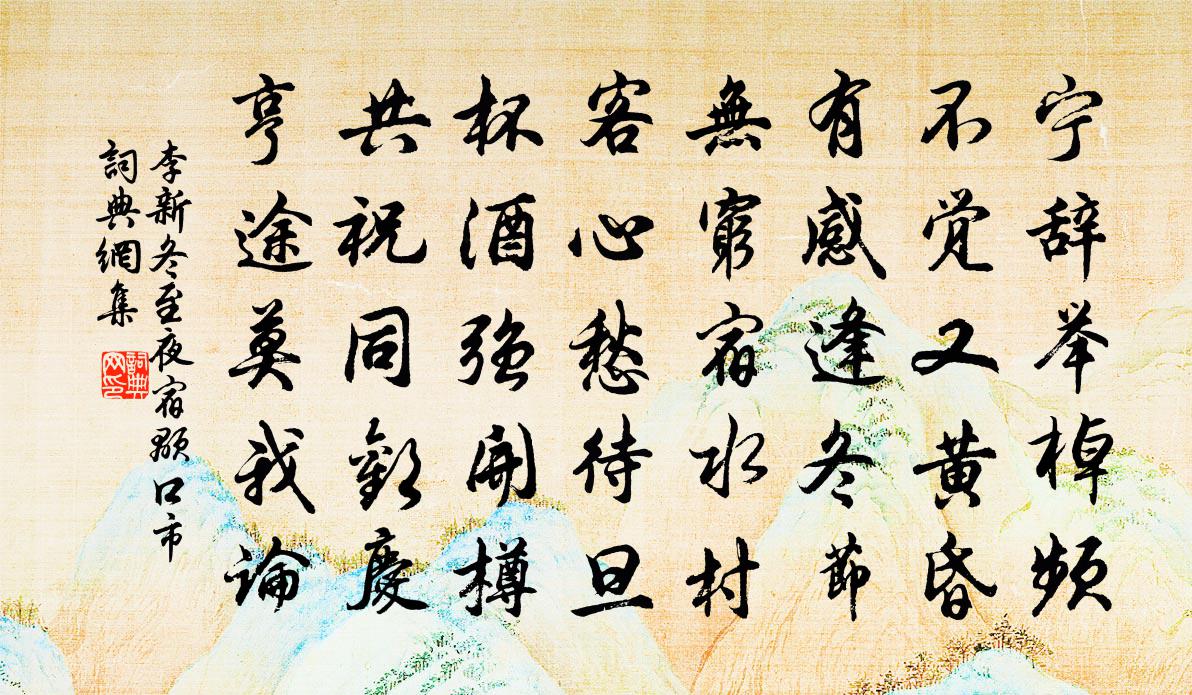 宁辞举棹频
不觉又黄昏
有感逢冬节
無窮宿水村
客心愁待旦
杯酒强開樽
共祝同歡慶
亨途莫我論
李新冬至夜宿颍口市
詞典網集
詞典
网印